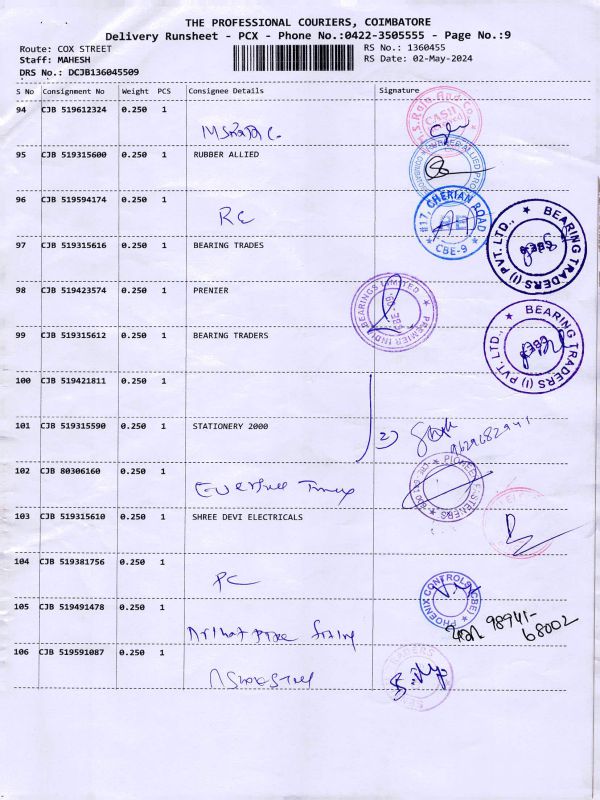 THE PROFESSIONAL COURIERS, COIMBATORE
Delivery Runsheet - PCX - Phone No.:0422-3505555 - Page No.:9
Route: COX STREET RS No.: 1360455
Staff: MAHESH RS Date: 02-May-2024
DRS No.: DCJB136045509
S No Consignment No Weight PCS Consignee Details Signature
94 CJB 519612324 0.250 1
95 CJB 519315600 0.250 1 RUBBER ALLIED
96 CJB 519594174 0.250 1
RC
#17, CHERIAN ROAD
CBE-9
97 CJB 519315616 0.250 1 BEARING TRADES
BEARING TRADERS (I) PVT. LTD.,
98 CJB 519423574 0.250 1 PRENIER
PREMIER INDIA BEARINGS LIMITED
99 CJB 519315612 0.250 1 BEARING TRADERS
BEARING TRADERS (I) PVT. LTD.,
100 CJB 519421811 0.250 1
101 CJB 519315590 0.250 1 STATIONERY 2000
2)
9629682941
102 CJB 80306160 0.250 1
103 CJB 519315610 0.250 1 SHREE DEVI ELECTRICALS
104 CJB 519381756 0.250 1
PC
PHOENIX CONTROLS (CBE)
105 CJB 519491478 0.250 1
98941-
68002
106 CJB 519591087 0.250 1